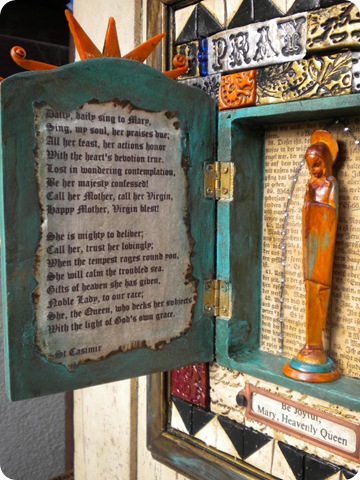 Daily, daily sing to Mary,
Sing, my soul, her praises due;
All her feast, her actions honor
With the heart's devotion true.
Lost in wondering contemplation,
Be her majesty confessed!
Call her Mother, call her Virgin,
Happy Mother, Virgin blest!
She is mighty to deliver;
Call her, trust her lovingly;
When the tempest rages round you,
She will calm the troubled sea.
Gifts of heaven she has given,
Noble Lady, to our race;
She, the Queen, who decks her subjects
With the light of God's own grace.
St Casimir
PRAY
Be Joyful,
Mary, Heavenly Queen